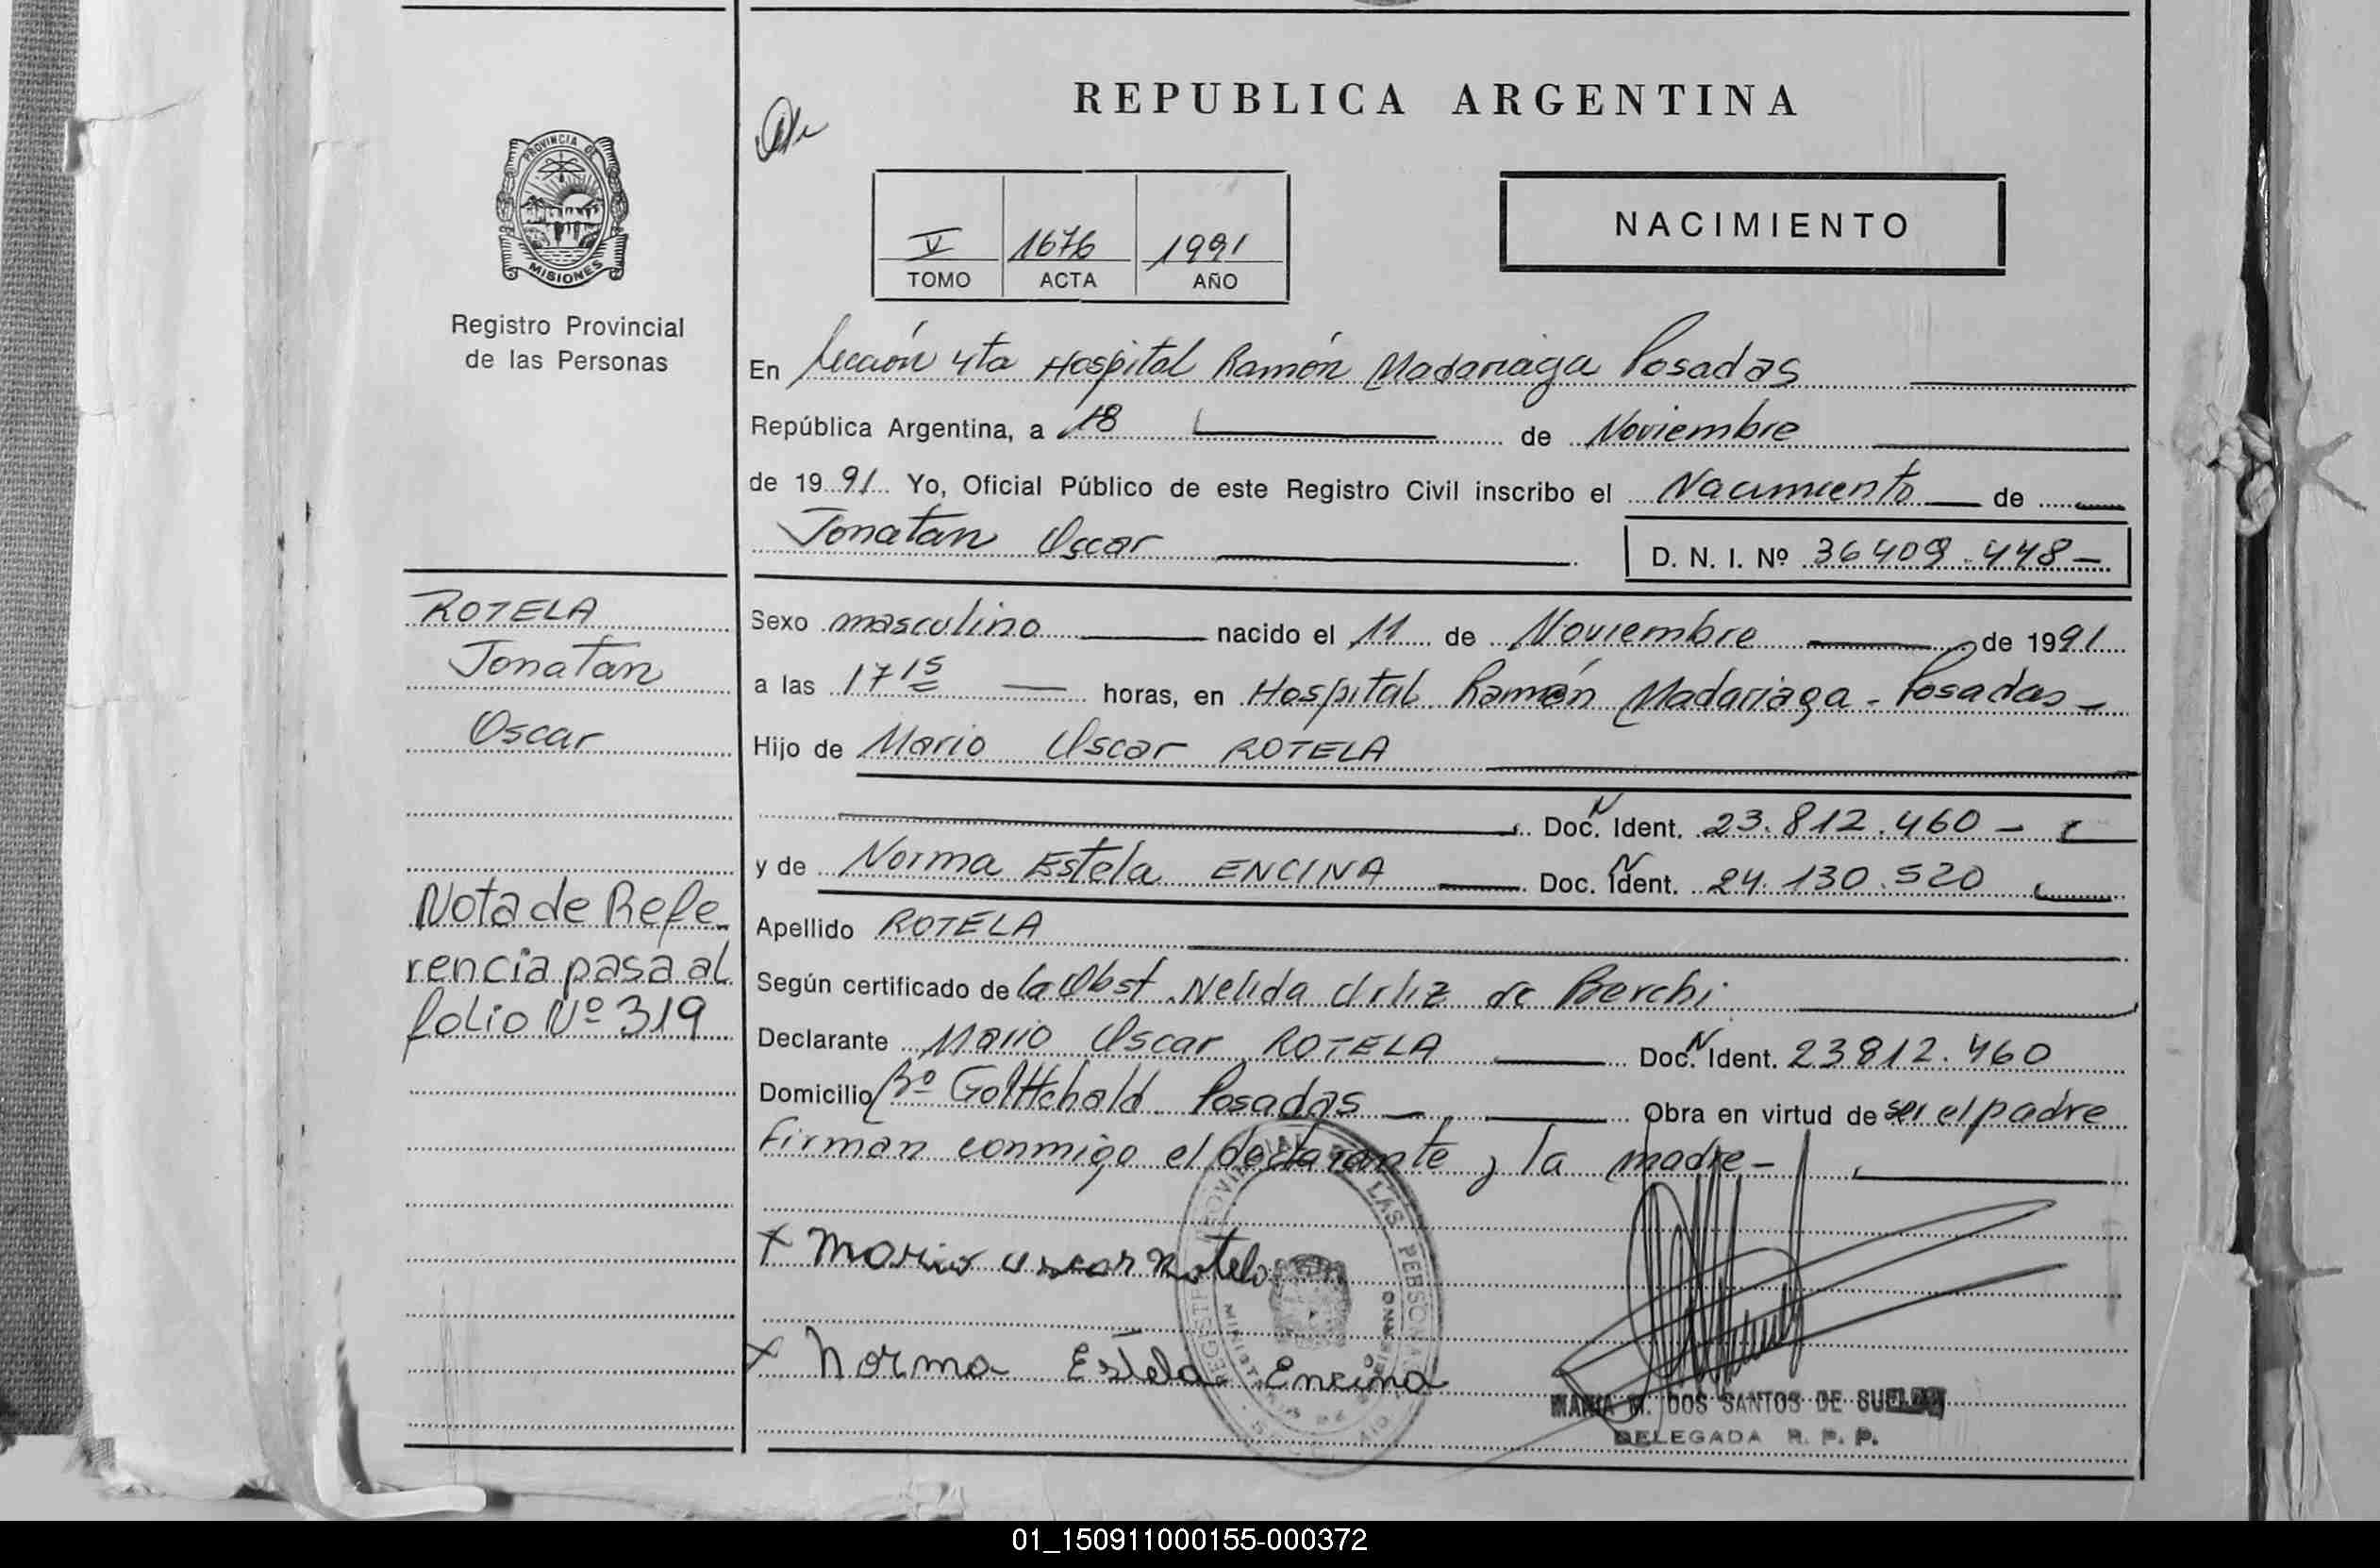 REPUBLICA ARGENTINA
PROVINCIA DE
MISIONES
Registro Provincial
de las Personas
V 1676 1991
TOMO ACTA AÑO
NACIMIENTO
En Sección 4ta Hospital Ramón Madariaga Posadas
República Argentina, a 18 de Noviembre
de 1991 Yo, Oficial Público de este Registro Civil inscribo el Nacimiento de
Jonatan Oscar D. N. I. Nº 36409.448-
ROTELA
Jonatan
Oscar
Nota de Refe-
rencia pasa al
folio Nº 319
Sexo masculino nacido el 11 de Noviembre de 1991
a las 17 15 horas, en Hospital Ramón Madariaga - Posadas -
Hijo de Mario Oscar ROTELA
Doc. N Ident. 23.812.460 -
y de Norma Estela ENCINA Doc. N Ident. 24.130.520
Apellido ROTELA
Según certificado de la Obst. Nelida Ortiz de Berchi
Declarante Mario Oscar ROTELA Doc. N Ident. 23812.460
Domicilio Bº Posadas - Obra en virtud de ser el padre
Firman conmigo el declarante y la madre -
+ Mario Oscar Rotela
+ Norma Estela Encina
REGISTRO PROVINCIAL DE LAS PERSONAS
MINISTERIO DE GOBIERNO
MARIA M. DOS SANTOS DE
DELEGADA R. P. P.
01_150911000155-000372